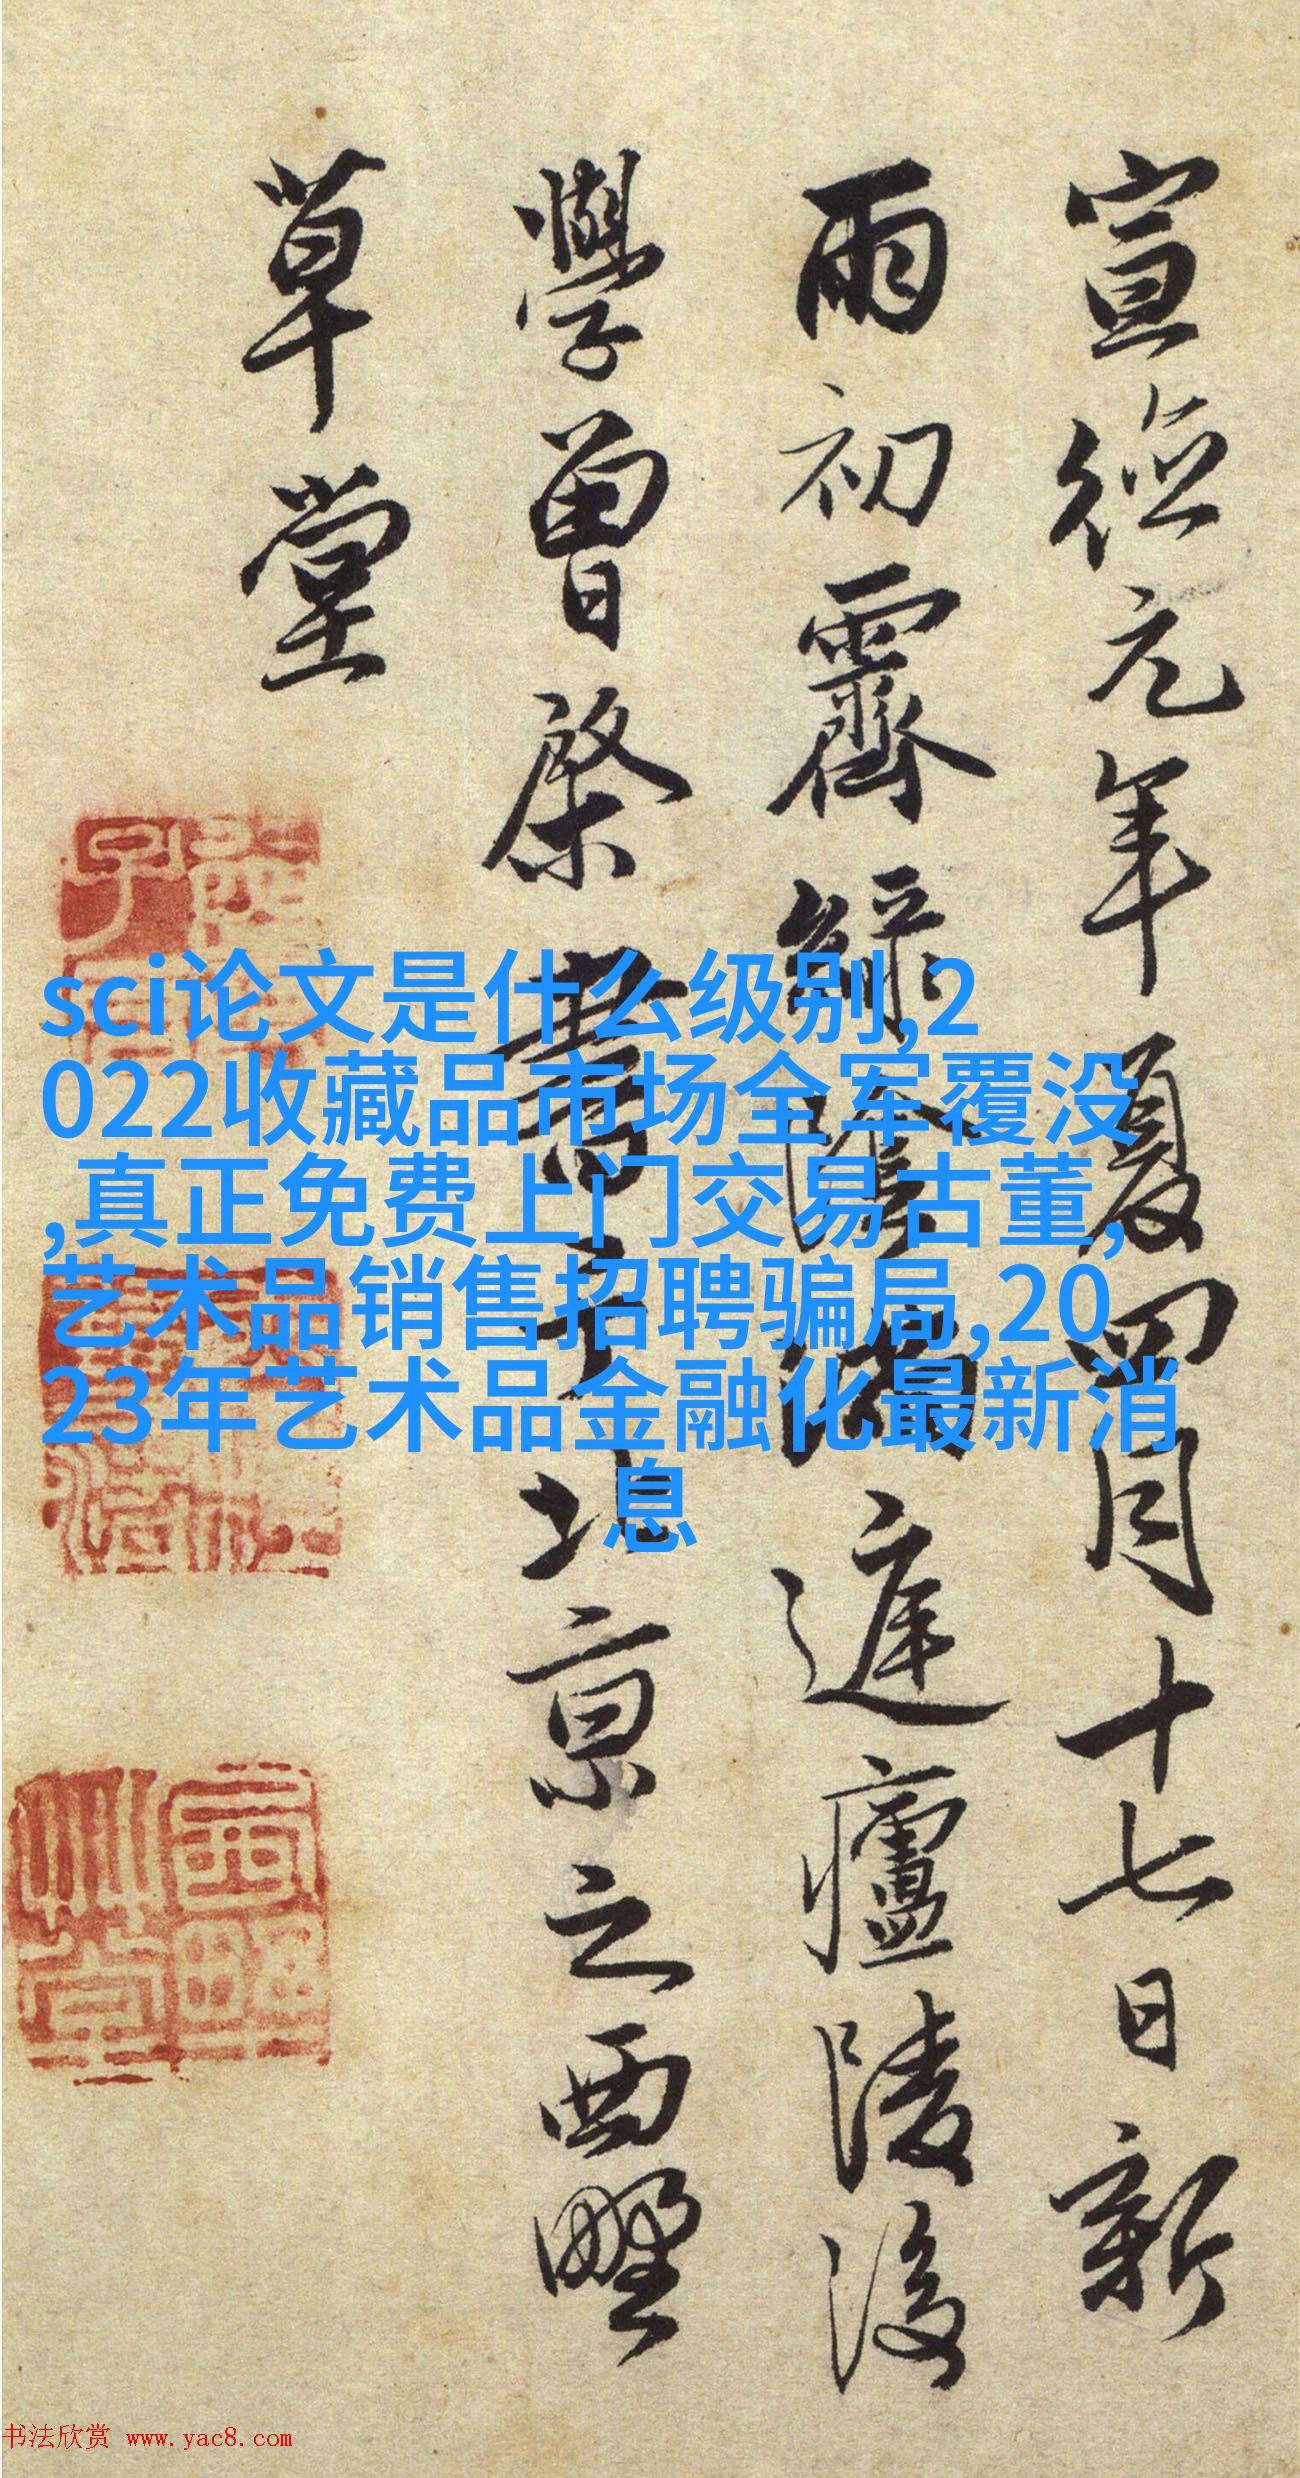 宣德元年夏四月十七日新
雨初霽綠陰滿庭廬陵後
學曾棨書于北京之西墅
草堂
sci论文是什么级别,2
022收藏品市场全军覆没
,真正免费上门交易古董,
艺术品销售招聘骗局,20
23年艺术品金融化最新消
息
书法欣赏 www.yac8.com